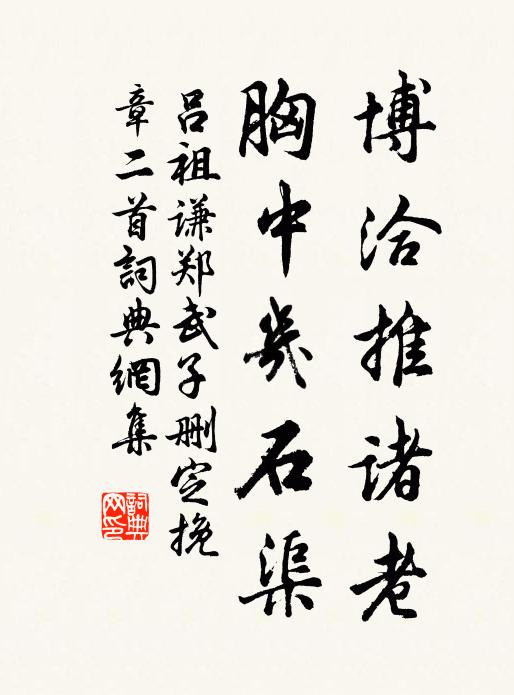 博洽推诸老
胸中幾石渠
吕祖谦郑武子删定挽
章二首詞典網集
詞典
网印